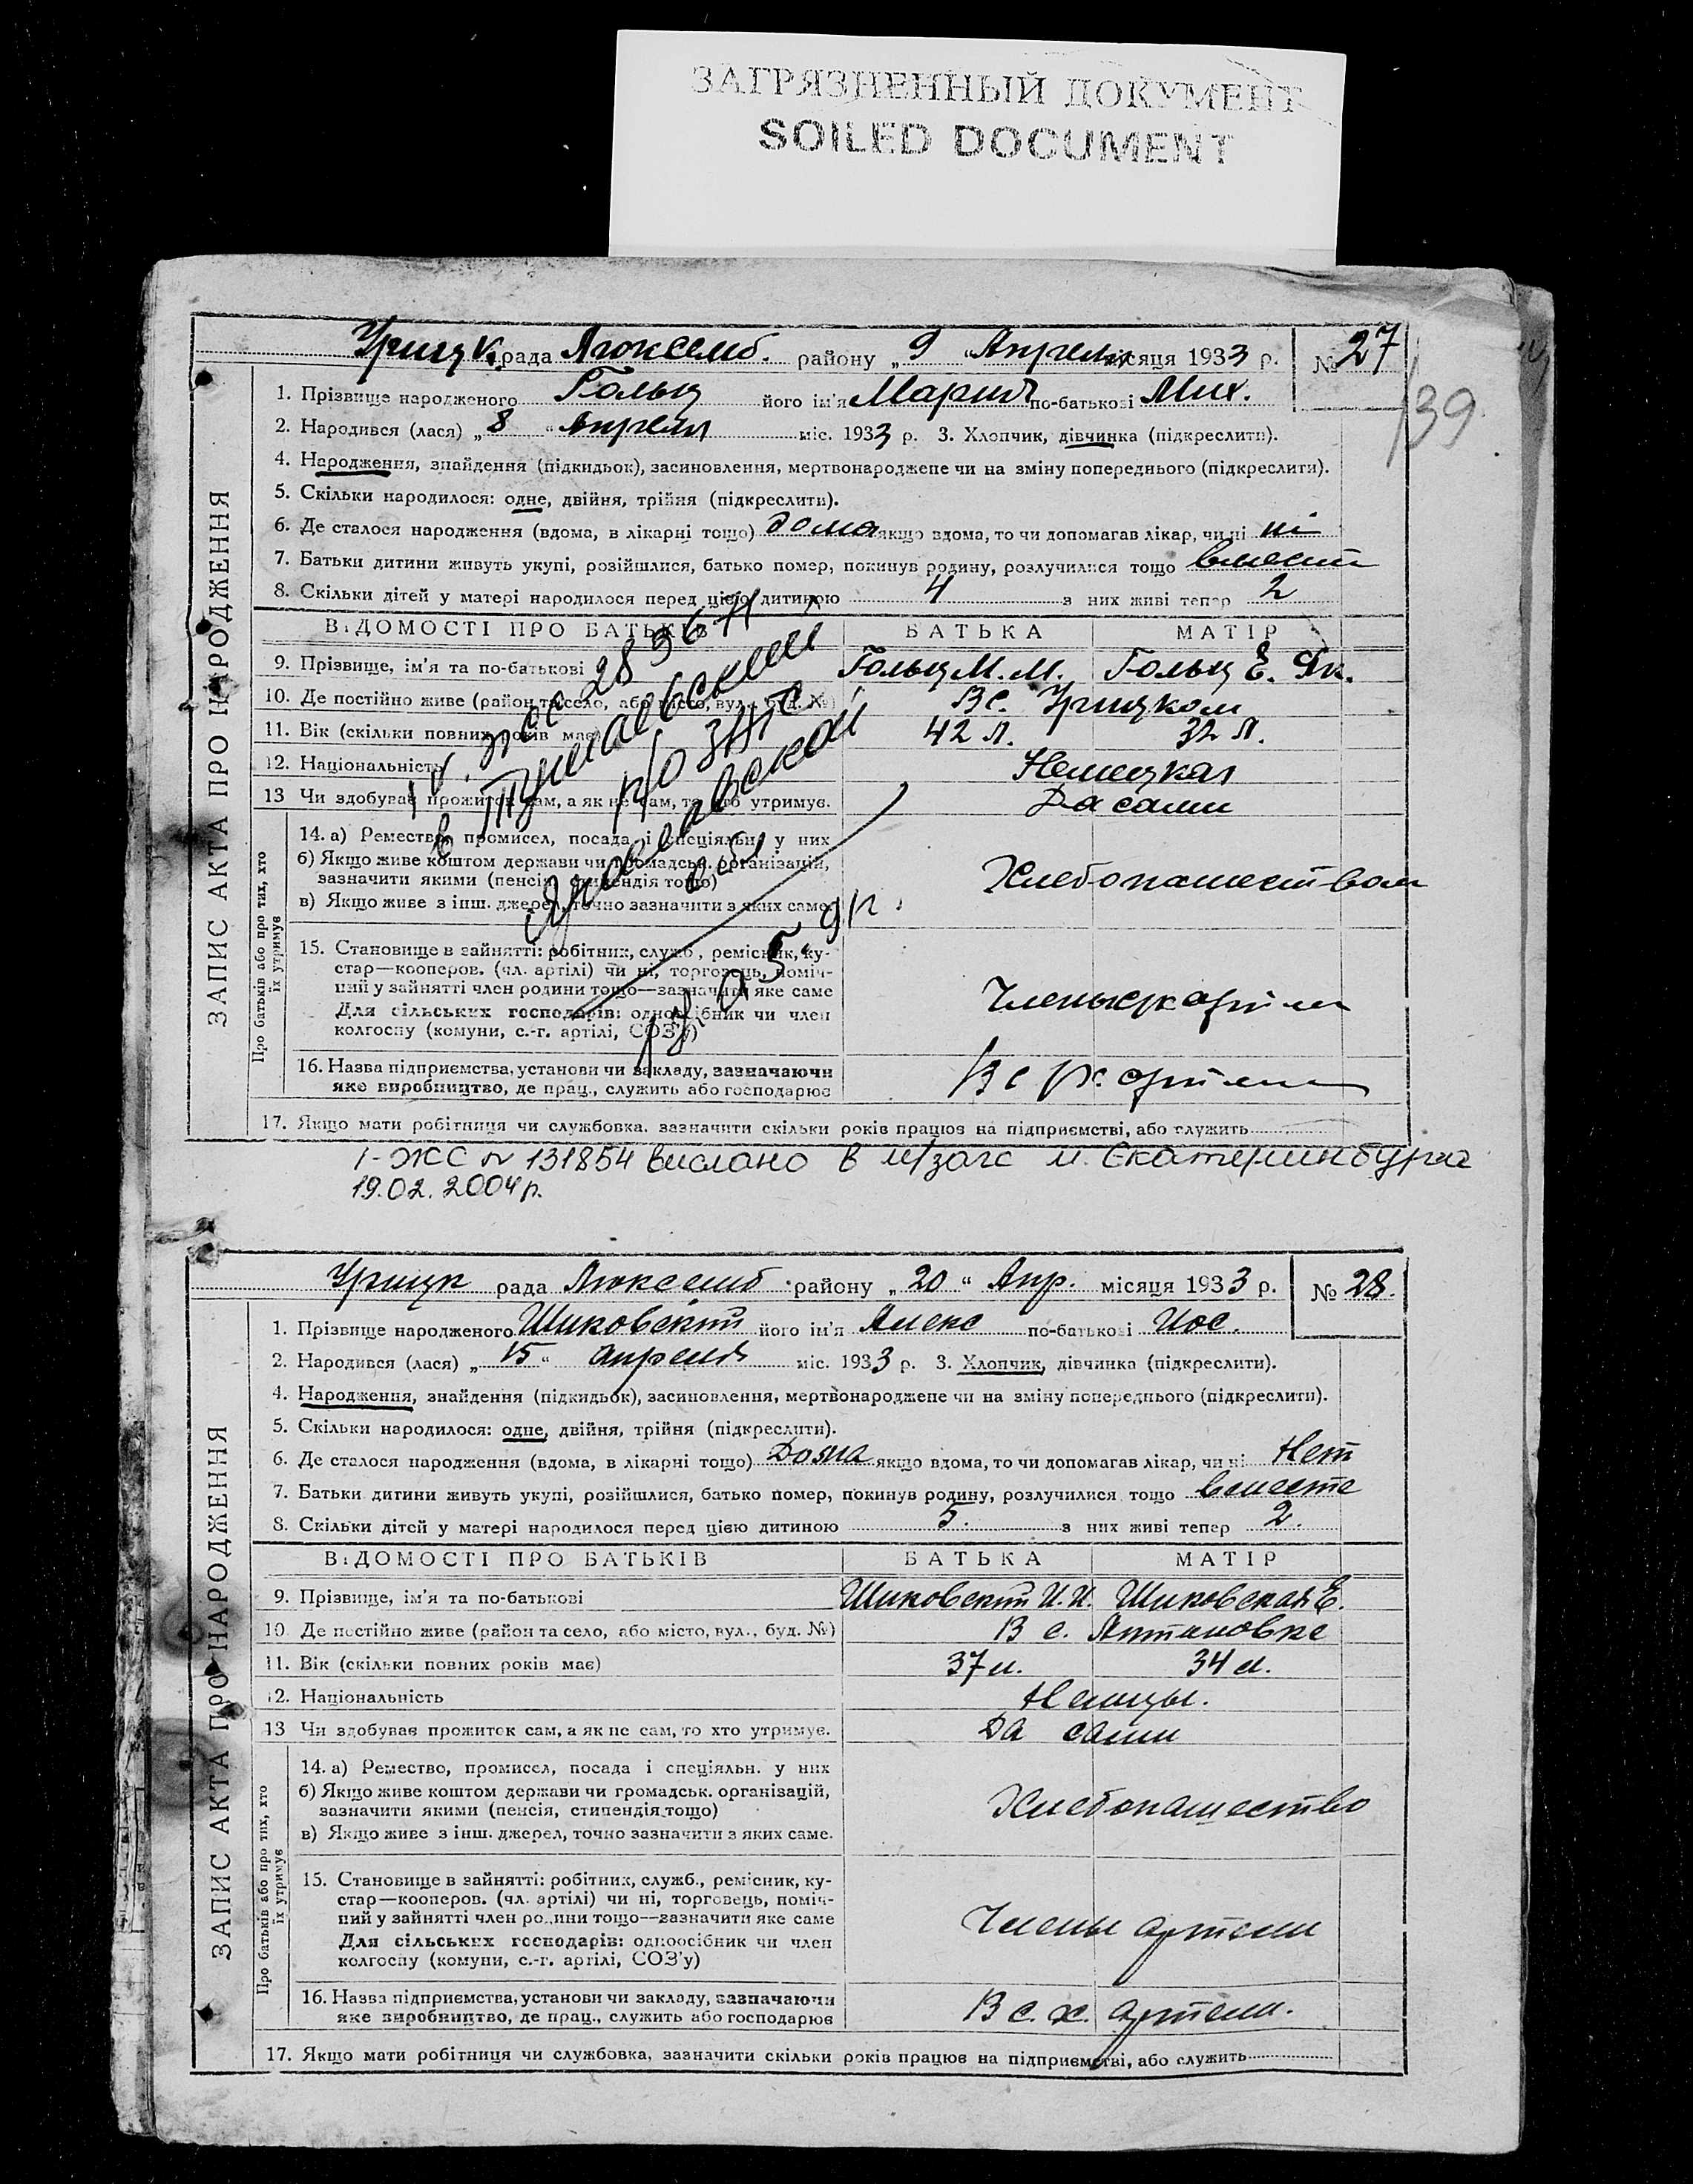 ЗАГРЯЗНЕННЫЙ ДОКУМЕНТ
SOILED DOCUMENT
Урицк. рада Люксемб. району „ 9 “ Апреля місяця 1933 р. № 27
139
ЗАПИС АКТА ПРО НАРОДЖЕННЯ
1. Прізвище народженого Гольц його ім'я Мария по-батькові Мих.
2. Народився (лася) „ 8 “ Апреля міс. 1933 р. 3. Хлопчик, дівчинка (підкреслити).
4. Народження, знайдення (підкидьок), засиновлення, мертвонароджене чи на зміну попереднього (підкреслити).
5. Скільки народилося: одне, двійня, трійня (підкреслити).
6. Де сталося народження (вдома, в лікарні тощо) дома якщо вдома, то чи допомагав лікар, чи ні ні
7. Батьки дитини живуть укупі, розійшлися, батько помер, покинув родину, розлучилися тощо вмест
8. Скільки дітей у матері народилося перед цією дитиною 4 з них живі тепер 2
ВІДОМОСТІ ПРО БАТЬКІВ БАТЬКА МАТІР
9. Прізвище, ім'я та по-батькові Гольц М. М. Гольц Е. Як.
10. Де постійно живе (район та село, або місто, вул., буд. №) В с. Урицком
11. Вік (скільки повних років має) 42 л. 32 л.
12. Національність Немецкая
13 Чи здобуває прожиток сам, а як не сам, то хто утримує. Да сами
Про батьків або про тих, хто їх утримує
14. а) Ремество, промисел, посада і спеціяльн. у них
б) Якщо живе коштом держави чи громадськ. організацій,
зазначити якими (пенсія, стипендія тощо)
Хлебопашеством
в) Якщо живе з інш. джерел, точно зазначити з яких саме.
15. Становище в зайнятті: робітник, служб., ремісник, ку-
стар—кооперов. (чл. артілі) чи ні, торговець, поміч-
ний у зайнятті член родини тощо—зазначити яке саме
Члены
Для сільських господарів: одноосібник чи член
колгоспу (комуни, с.-г. артілі, СОЗ'у)
16. Назва підприємства, установи чи закладу, зазначаючи
яке виробництво, де прац., служить або господарює
17. Якщо мати робітниця чи службовка, зазначити скільки років працює на підприємстві, або служить
І-ЖС № 131854 вислано в м. Екатеринбурга
19.02.2004 р.
Урицк рада Люксемб. району „ 20 “ Апр. місяця 1933 р. № 28.
ЗАПИС АКТА ПРО НАРОДЖЕННЯ
1. Прізвище народженого Шиковский його ім'я Алекс по-батькові Иос.
2. Народився (лася) „ 15 “ апреля міс. 1933 р. 3. Хлопчик, дівчинка (підкреслити).
4. Народження, знайдення (підкидьок), засиновлення, мертвонароджене чи на зміну попереднього (підкреслити).
5. Скільки народилося: одне, двійня, трійня (підкреслити).
6. Де сталося народження (вдома, в лікарні тощо) Дома якщо вдома, то чи допомагав лікар, чи ні Нет
7. Батьки дитини живуть укупі, розійшлися, батько помер, покинув родину, розлучилися тощо вместе
8. Скільки дітей у матері народилося перед цією дитиною 5. з них живі тепер 2.
ВІДОМОСТІ ПРО БАТЬКІВ БАТЬКА МАТІР
9. Прізвище, ім'я та по-батькові Шиковский И. И. Шиковская Е.
10. Де постійно живе (район та село, або місто, вул., буд. №) В с.
11. Вік (скільки повних років має) 37 л. 34 л.
12. Національність Немцы.
13 Чи здобуває прожиток сам, а як не сам, то хто утримує. Да сами
Про батьків або про тих, хто їх утримує
14. а) Ремество, промисел, посада і спеціяльн. у них
б) Якщо живе коштом держави чи громадськ. організацій,
зазначити якими (пенсія, стипендія тощо)
Хлебопашество
в) Якщо живе з інш. джерел, точно зазначити з яких саме.
15. Становище в зайнятті: робітник, служб., ремісник, ку-
стар—кооперов. (чл. артілі) чи ні, торговець, поміч-
ний у зайнятті член родини тощо—зазначити яке саме
Члены артели
Для сільських господарів: одноосібник чи член
колгоспу (комуни, с.-г. артілі, СОЗ'у)
16. Назва підприємства, установи чи закладу, зазначаючи
яке виробництво, де прац., служить або господарює
В с. х. артели.
17. Якщо мати робітниця чи службовка, зазначити скільки років працює на підприємстві, або служить